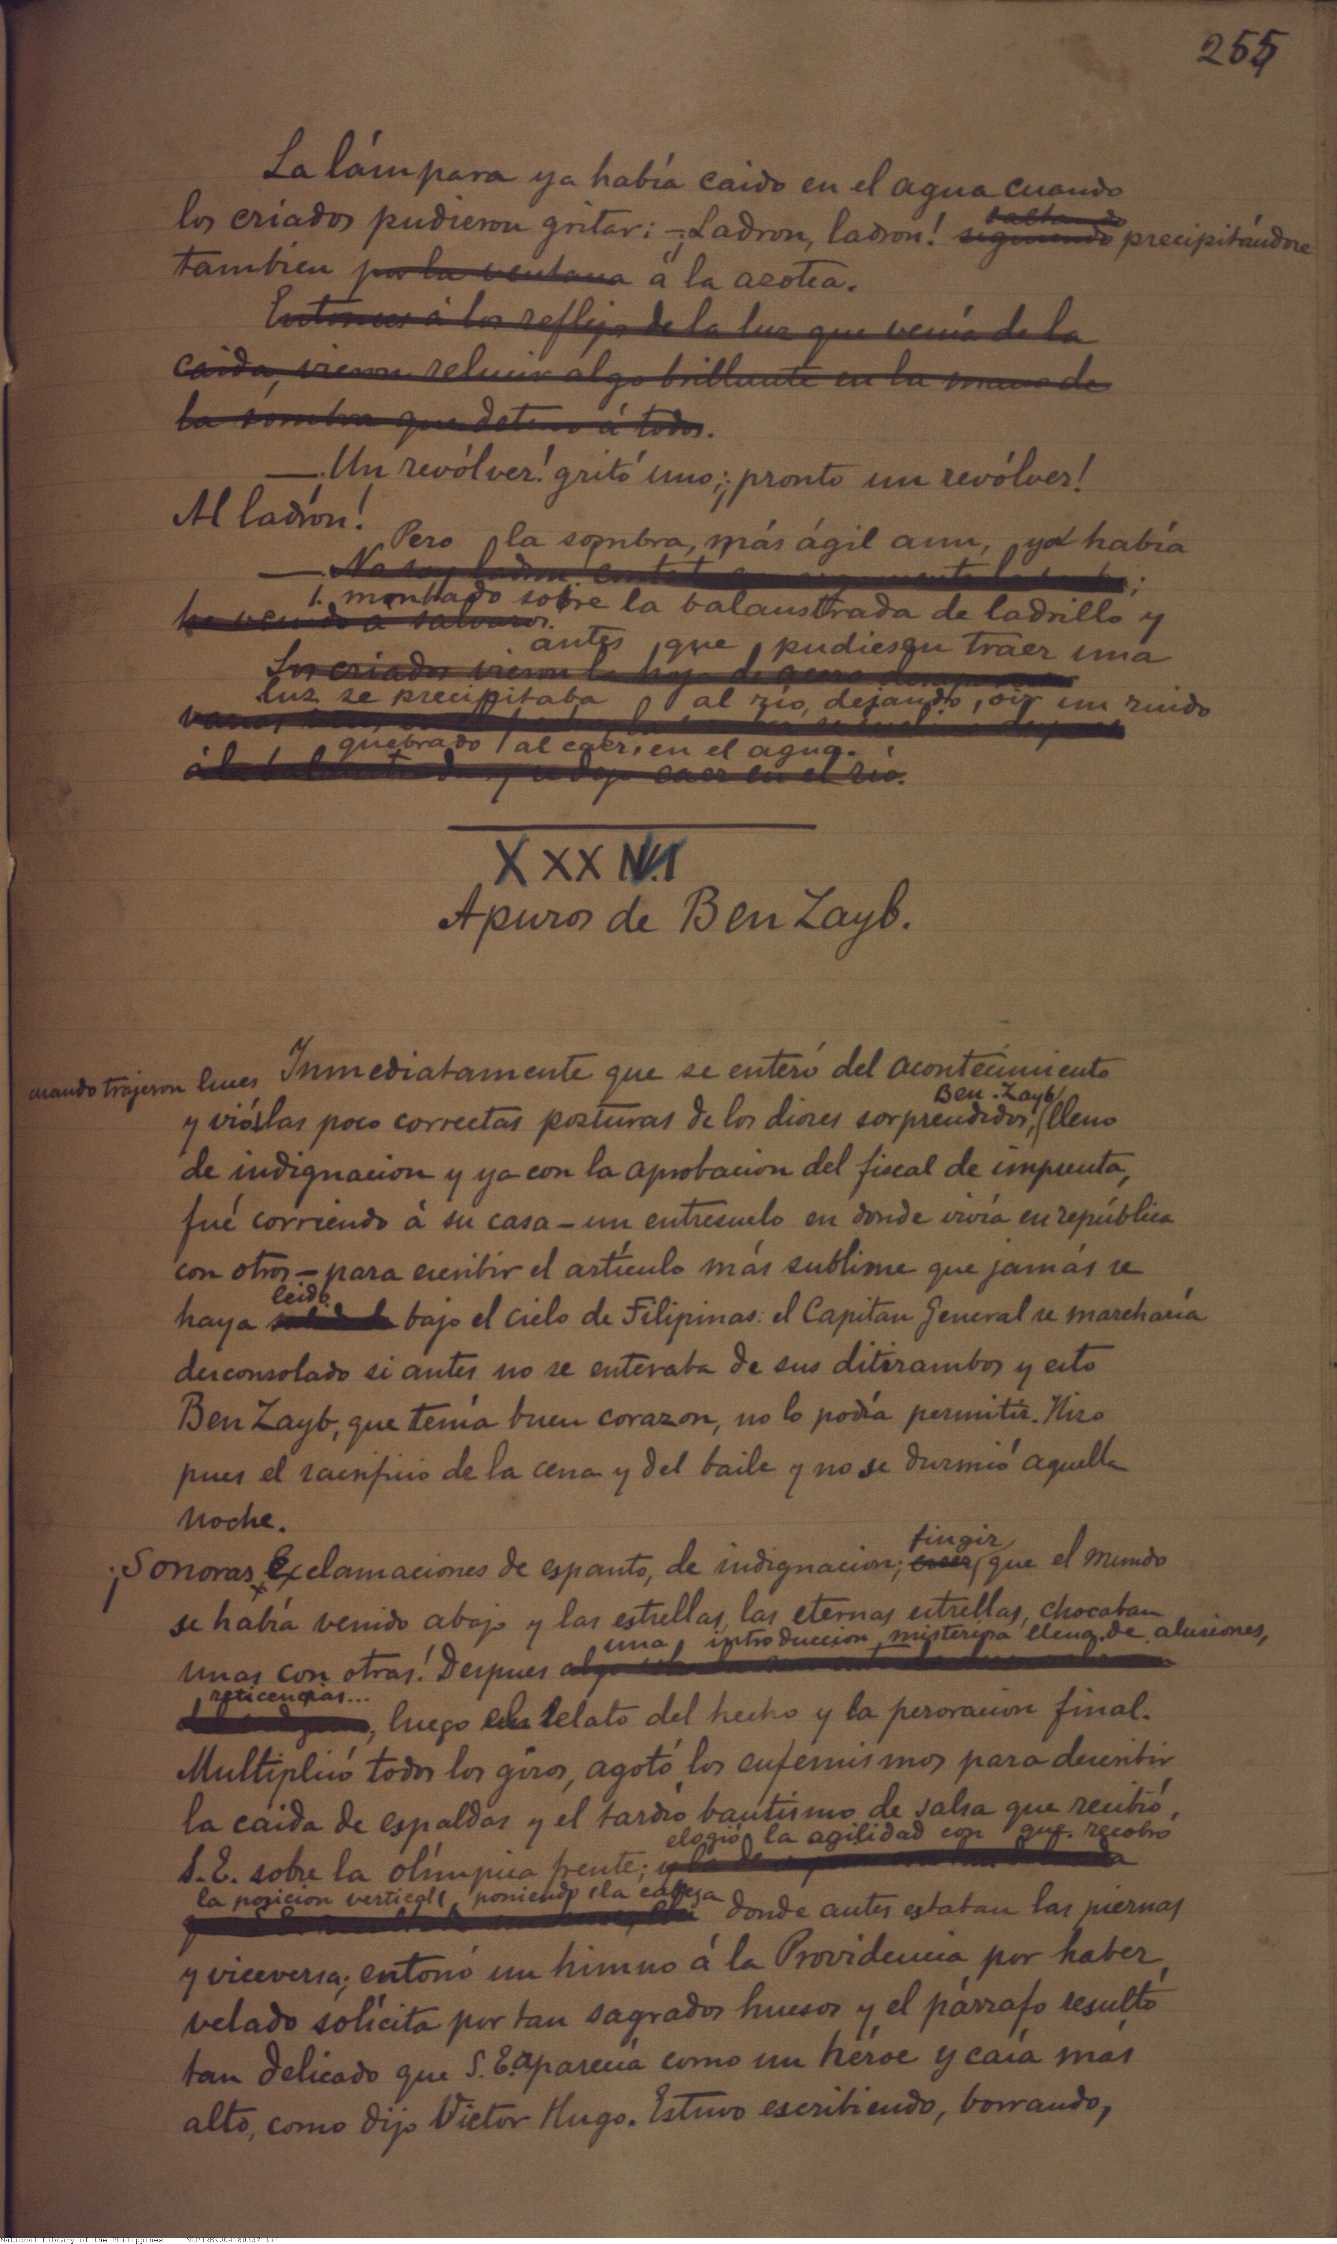 255
La lámpara ya había caido en el agua cuando
los criados pudieron gritar: —¡Ladron, ladron! saltando siguiendo precipitándose
tambien por la ventana á la azotea.
Entonces á los reflejos de la luz que venía de la
caida, vieron relucir algo brillante en la mano de
la sombra que detuvo á todos.
—Un revólver! gritó uno; ¡pronto un revólver!
Al ladrón!
Pero la sombra, más ágil aun, ya había
—No soy ladron
montado sobre la balaustrada de ladrillo y
he venido á salvaros.
antes que pudiesen traer una
Los criados vieron la hoja de acero
luz se precipitaba al río, dejando oir un ruido
quebrado al caer en el agua.
á la balaustrada y se dejo caer en el río.
XXXVI
Apuros de Ben Zayb.
Inmediatamente que se enteró del acontecimiento
cuando trajeron luces
Ben-Zayb
y vió las poco correctas posturas de los dioses sorprendidos, lleno
de indignacion y ya con la aprobacion del fiscal de imprenta,
fué corriendo á su casa — un entresuelo en donde vivía en república
con otros — para escribir el artículo más sublime que jamás se
leido
haya bajo el cielo de Filipinas: el Capitan General se marcharía
desconsolado si antes no se enteraba de sus ditirambos y esto
Ben Zayb, que tenía buen corazon, no lo podía permitir. Hizo
pues el sacrificio de la cena y del baile y no se durmió aquella
noche.
fingir
¡Sonoras exclamaciones de espanto, de indignacion; creer que el mundo
se había venido abajo y las estrellas, las eternas estrellas, chocaban
una introduccion, misteriosa llena de alusiones,
unas con otras! Despues
reticencias...
luego el relato del hecho y la peroracion final.
Multiplicó todos los giros, agotó los eufemismos para describir
la caida de espaldas y el tardío bautismo de salsa que recibió
elogió la agilidad con que recobró
S.E. sobre la olímpica frente;
la posicion vertical, poniendo la cabeza
donde antes estaban las piernas
y viceversa; entonó un himno á la Providencia por haber
velado solícita por tan sagrados huesos y el párrafo resultó
tan delicado que S.E. aparecía como un héroe y caía más
alto, como dijo Victor Hugo. Estuvo escribiendo, borrando,